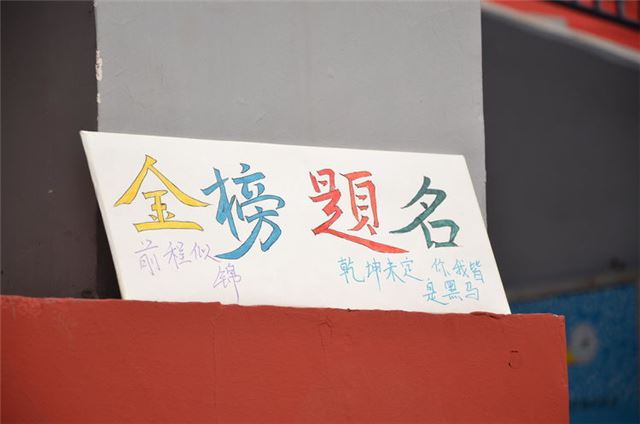 金榜題名
前程似
锦
乾坤未定 你我皆
是黑马